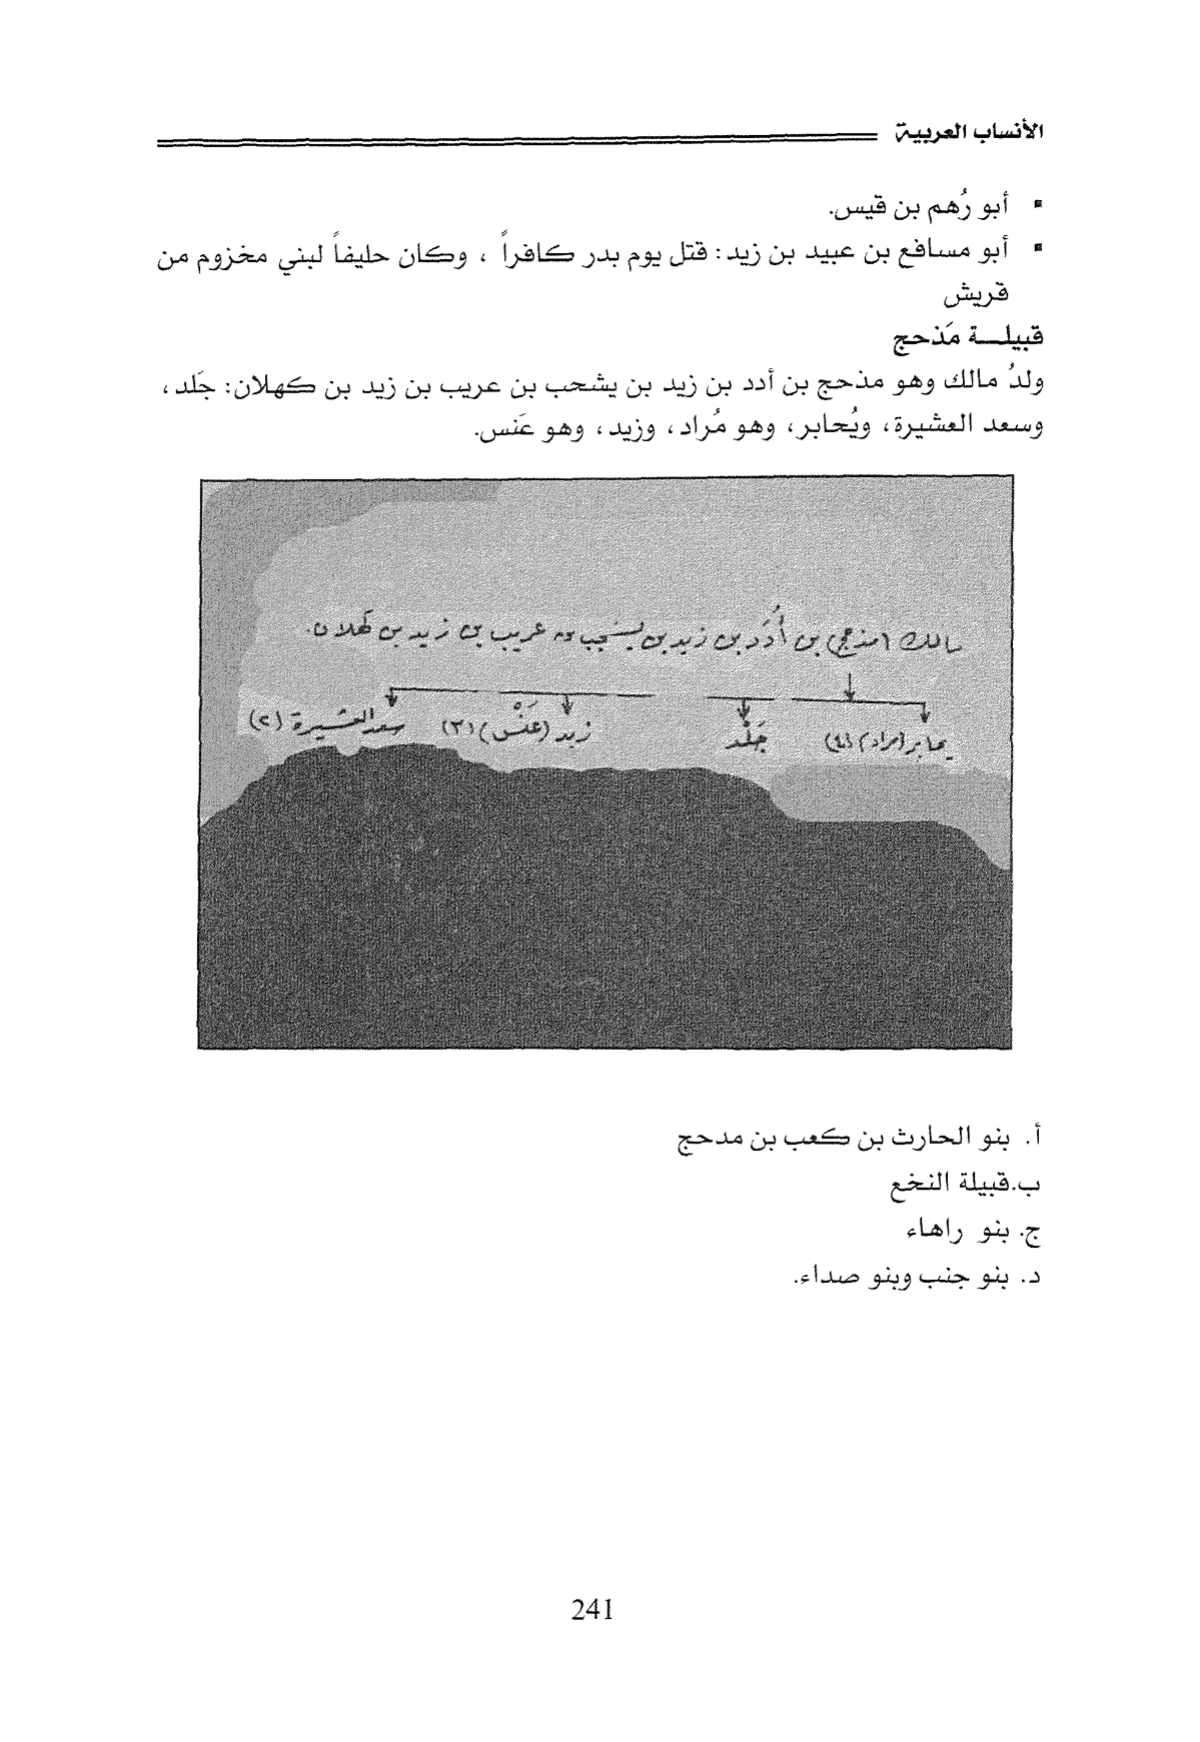 الأنساب العربية
▪ أبو رُهم بن قيس.
▪ أبو مسافع بن عبيد بن زيد: قتل يوم بدر كافراً ، وكان حليفاً لبني مخزوم من
قريش
قبيلـــة مَذحج
ولدُ مالك وهو مذحج بن أدد بن زيد بن يشحب بن عريب بن زيد بن كهلان: جَلد ،
وسعد العشيرة، ويُحابر، وهو مُراد ، وزيد، وهو عَنس.
مالك (مذحج) بن أُدَد بن زيد بن يشجب بن عريب بن زيد بن كهلان.
يحابر (مراد) جَلْد زيد (عَنْس) (٣) سعد العشيرة (٢)
أ. بنو الحارث بن كعب بن مدحج
ب.قبيلة النخع
ج. بنو راهاء
د. بنو جنب وبنو صداء.
241